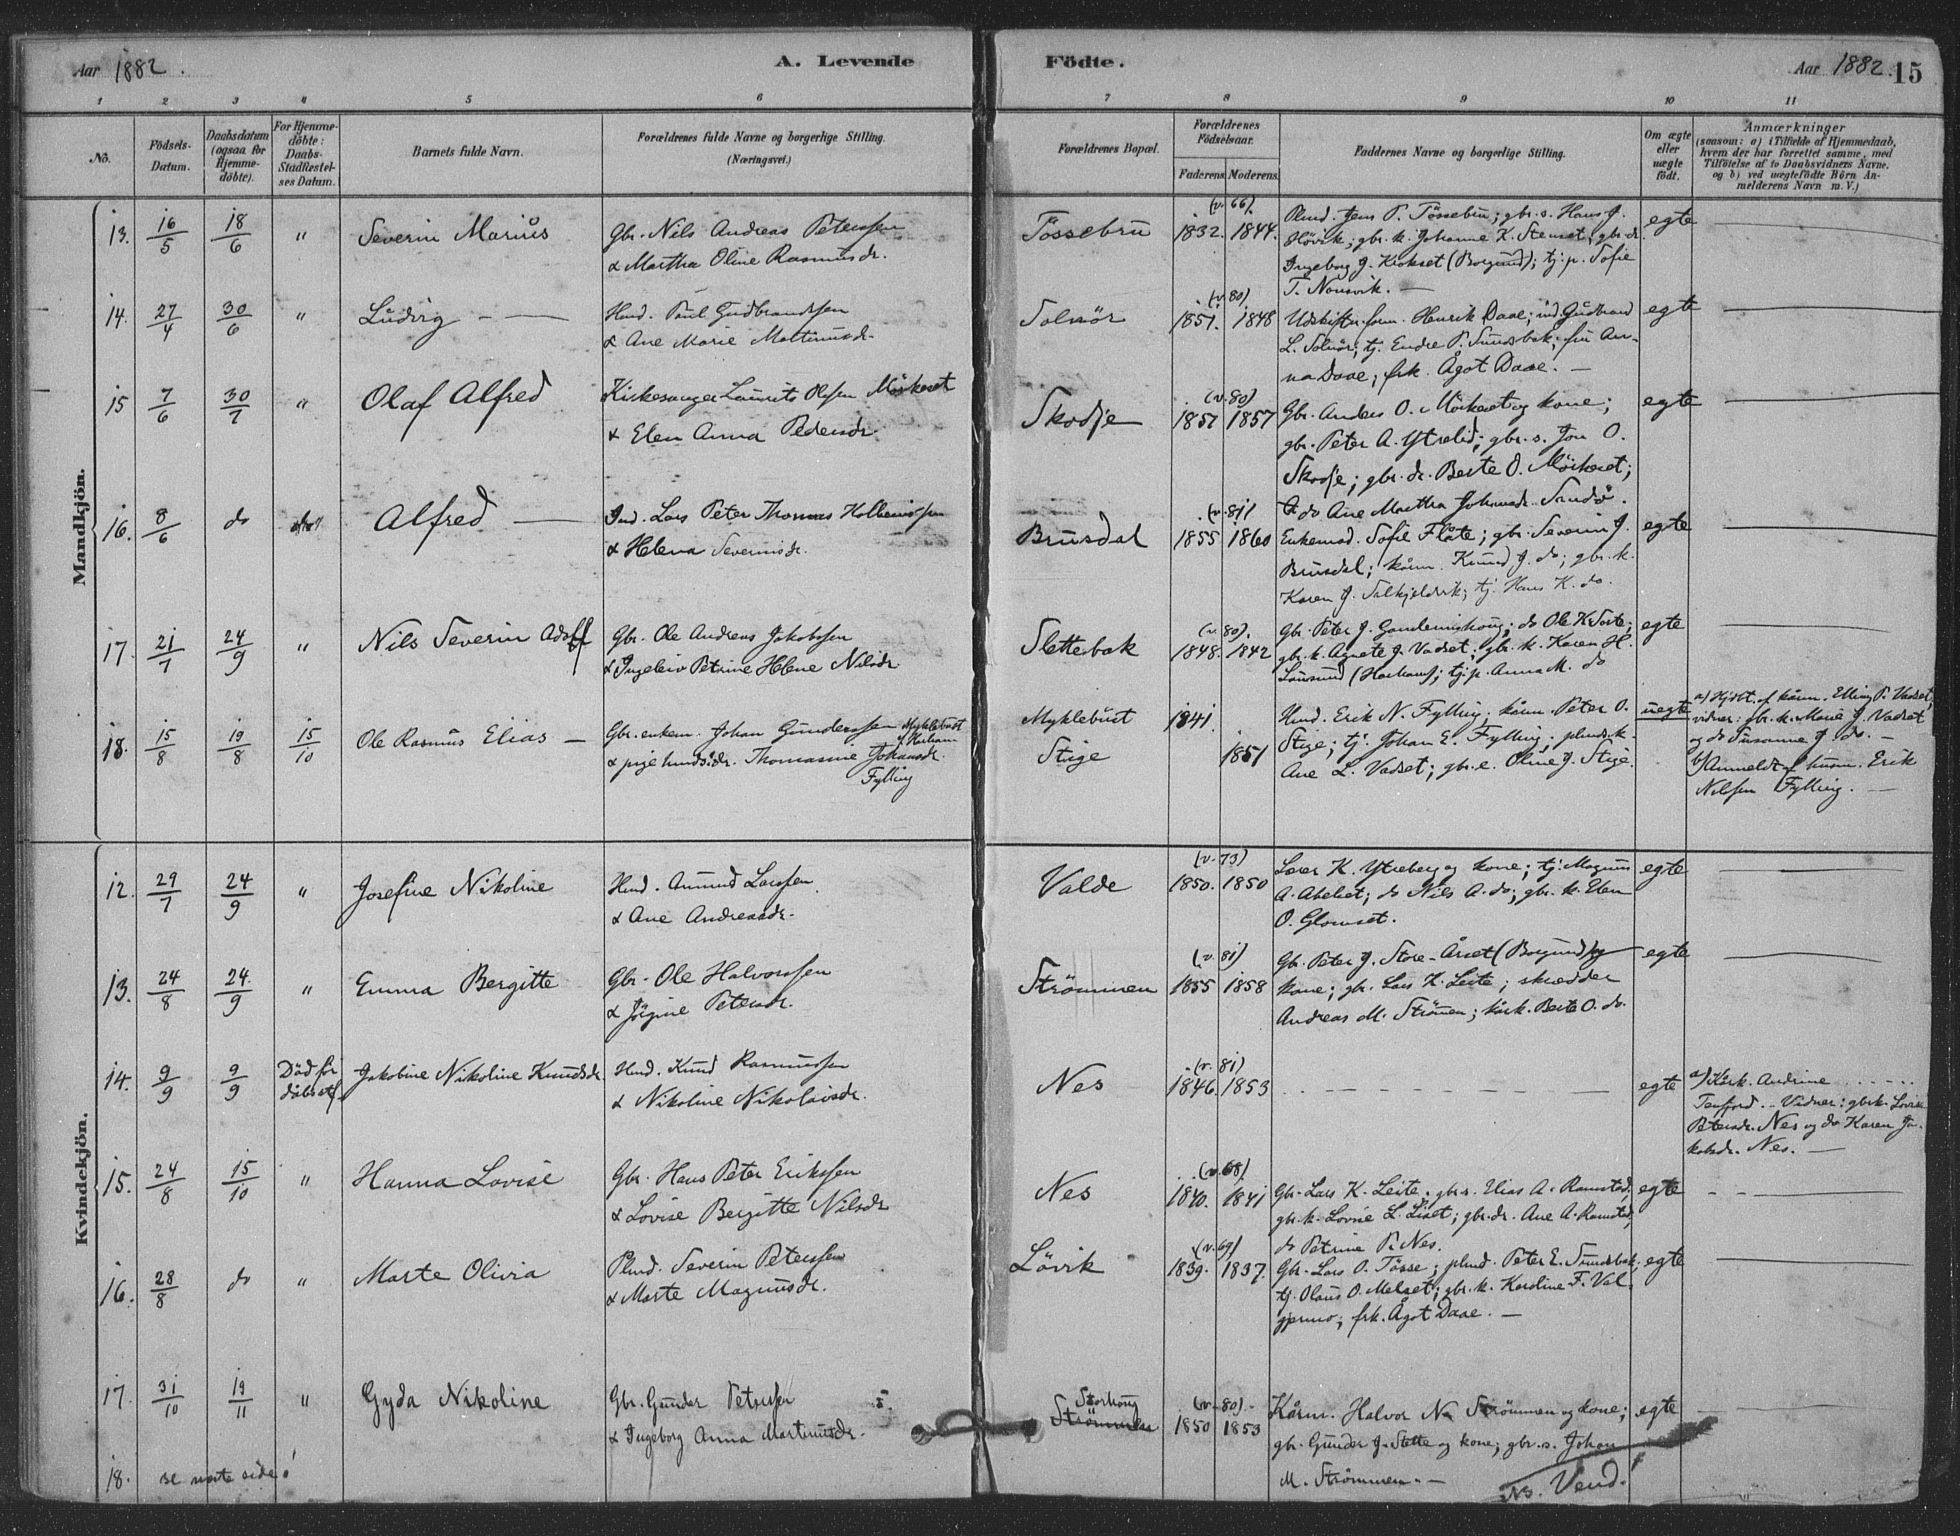 Aar 1882.
A. Levende
Födte.
Aar 1882.
15
1 2 3 4 5 6 7 8 9 10 11
No.
Födsels-
Datum.
Daabsdatum
(ogsaa for
Hjemme-
döbte).
For Hjemme-
döbte:
Daabs-
Stadfæstel-
ses Datum.
Barnets fulde Navn.
Forældrenes fulde Navne og borgerlige Stilling.
(Næringsvei.)
Forældrenes Bopæl.
Forældrenes
Födselsaar.
Faderens. Moderens.
Faddernes Navne og borgerlige Stilling.
Om ægte
eller
uægte
födt.
Anmærkninger
(saasom: a) i Tilfælde af Hjemmedaab,
hvem der har forrettet samme, med
Tilföielse af to Daabsvidners Navne,
og b) ved uægtefödte Börn An-
melderens Navn m. V.)
Mandkjön.
13. 16/5 18/6 " Severin Marius
Gbr. Nils Andreas Peterssen
& Martha Oline Rasmusdr.
Tössebru
(v. 66).
1832. 1844.
Plmd. Jens P. Tössebru; gbr. s. Hans J.
Hövik; gbr. k. Johanne K. Stenset; gbr. dr.
Ingeborg J. Krokset (Borgund); tj. p. Sofie
T. Nonsvik. —
egte
14. 27/4 30/6 " Ludvig —
Husd. Paul Gudbrandssen
& Ane Marie Mattinusdr.
Solnör
(v. 80)
1851. 1848
Udskiftn.form. Henrik Daae; ind. Gudbrand
L. Solnör; tj. Endre P. Sundsbak; fru An-
na Daae; frk. Ågot Daae. —
egte
15 7/6 30/7 " Olaf Alfred
Kirkesanger Laurits Olsen Mörkeset
& Elen Anna Pedersdr.
Skodje
(v. 80)
1857 1857
Gbr. Anders O. Mörkeset og kone;
gbr. Peter A. Ytrelid; gbr. s. Jon O.
Skodje; gbr. dr. Berte O. Mörkeset;
do Ane Martha Johansdr.
egte
16. 8/6 do Alfred —
Ind. Lars Peter Thomas
& Helena Severinsdr.
Brusdal
(v. 81)
1855 1860
Enkemad. Sofie Flåte; gbr. Severin J.
Brusdal; kårm. Knud J. do; gbr. k.
Karen J.; tj. Hans K. do.
egte
17. 21/7 24/9 " Nils Severin Adolf
Gbr. Ole Andreas Jakobssen
& Ingeleiv Petrine Helene Nilsdr
Slettebak
(v. 80).
1848. 1842
Gbr. Peter J.; do Ole K.
gbr. k. Agnete J. Vadset; gbr. k. Karen H.
Lausund (Harham); tj. p. Anna M. do
egte
18. 15/8 19/8 15/10 Ole Rasmus Elias —
Gbr. enkem. Johan Gunderssen Myklebust Harham
& pige husd. dr. Thomasine Johansdr.
Fylling
Myklebust
Stige
1841.
1851
Husd. Erik N. Fylling; kårm. Peter O.
Stige; tj. Johan E. Fylling; plmds. k.
Ane L. Vadset; gbr. e. Oline J. Stige.
uegte
a) Hjdbt. af kårm. Elling P. Vadset;
vidner: gbr. k. Marie J. Vadset
og do Susanne J. do. —
b) Anmeldt af husm. Erik
Nilssen Fylling. —
Kvindekjön.
12. 29/7 24/9 " Josefine Nikoline
Husd. Amund Larssen
& Ane Andreasdr.
Valde
(v. 73)
1850. 1850
Lærer K. Ytreberg og kone; tj. Magnus
A. Abelset; do Nils A. do; gbr. k. Elen
O. Glomset.
egte
13. 24/8 24/9 " Emma Bergitte
Gbr. Ole Halvorssen
& Jörgine Petersdr.
Strömmen
(v. 81)
1855 1858
Gbr. Peter J. Store-Årset (Borgund) og
kone; gbr. Lars K. Leite; skrædder
Andreas M. Strömen; kårk. Berte O. do.
egte
14. 9/9 9/9 Död för
dåbst.
Jakobine Nikoline Knudsdr.
Husd. Knud Rasmussen
& Nikoline Nikolaisdr.
Nes
(v. 81)
1846. 1853
egte
a) Kårk. Andrine
Tenfjord. Vidner: gbrk. Lovise
Petersdr. Nes og do Karen Ja-
kobsdr. Nes. —
15. 24/8 15/10 " Hanna Lovise
Gbr. Hans Peter Erikssen
& Lovise Bergitte Nilsdr
Nes
(v. 68).
1840. 1841
Gbr. Lars K. Leite; gbr. s. Elias A. Ramstad;
gbr. k. Lovise L. Liset; gbr. dr. Ane A. Ramstad,
do Petrine P. Nes.
egte
16. 28/8 do " Marte Olivia
Plmd. Severin Peterssen
& Marte Magnusdr.
Lövik
(v. 69)
1839. 1837.
Gbr. Lars O. Tösse; plmd. Peter E. Sundsbak;
tj. Olaus O. Melset; gbr. k. Karoline F. Val-
germo; frk. Ågot Daae. —
egte
17. 31/10 19/11 " Gyda Nikoline
Gbr. Gunder Peterssen
& Ingeborg Anna Martinusdr.
Storhaug
Strömmen
(v. 80)
1850 1853
Kårm. Halvor N. Strömmen og kone;
gbr. Gunder J. Slette og kone; gbr. s. Johan
M. Strömmen. —
egte
18. se neste side!
NB. Vend!